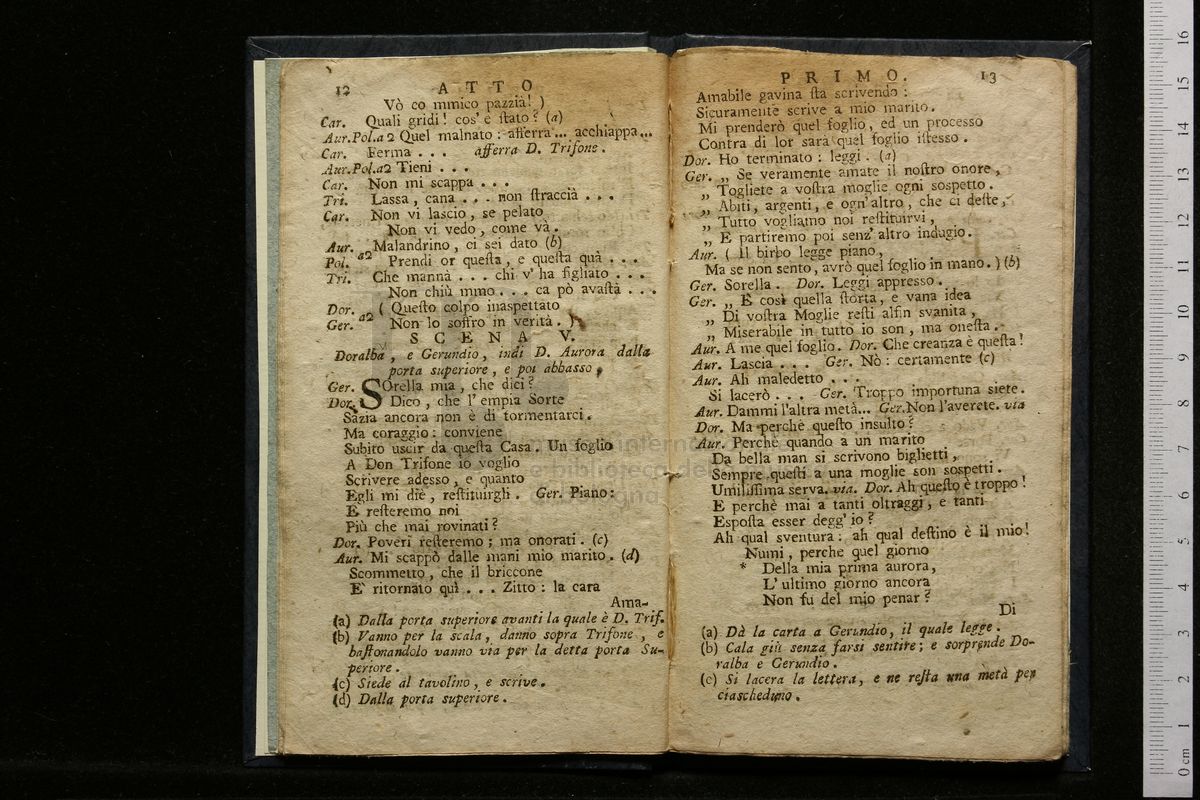 12 A T T O
Vò co mmico pazzia! )
Car. Quali gridi! cos' è ſtato? (a)
Aur.Pol.a 2 Quel malnato: afferra... acchiappa...
Car. Ferma . . . afferra D. Trifone.
Aur.Pol.a2 Tieni . . .
Car. Non mi scappa . . .
Tri. Lassa, cana . . . non ſtraccià . . .
Car. Non vi lascio, se pelato
Non vi vedo, come và.
Aur. Malandrino, ci sei dato (b)
Pol. a2 Prendi or queſta, e queſta quà . . .
Tri. Che mannà . . . chi v' ha figliato . . .
Non chiù mmo . . . ca pò avaſtà . . .
Dor. ( Queſto colpo inaspettato
Ger. a2 Non lo soffro in verità. )
S C E N A V.
Doralba, e Gerundio, indi D. Aurora dalla
porta superiore, e poi abbasso,
Ger. SOrella mia, che dici?
Dor. Dico, che l' empia Sorte
Sazia ancora non è di tormentarci.
Ma coraggio: conviene
Subito uscir da queſta Casa. Un foglio
A Don Trifone io voglio
Scrivere adesso, e quanto
Egli mi diè, reſtituirgli. Ger. Piano:
E reſteremo noi
Più che mai rovinati?
Dor. Poveri reſteremo; ma onorati. (c)
Aur. Mi scappò dalle mani mio marito. (d)
Scommetto, che il briccone
E' ritornato quì . . . Zitto: la cara
Ama-
(a) Dalla porta superiore avanti la quale è D. Trif.
(b) Vanno per la scala, danno sopra Trifone, e
baſtonandolo vanno via per la detta porta Su-
periore.
(c) Siede al tavolino, e scrive.
(d) Dalla porta superiore.
P R I M O. 13
Amabile gavina ſta scrivendo:
Sicuramente scrive a mio marito.
Mi prenderò quel foglio, ed un processo
Contra di lor sarà quel foglio iſtesso.
Dor. Ho terminato: leggi. (a)
Ger. „ Se veramente amate il noſtro onore,
„ Togliete a voſtra moglie ogni sospetto.
„ Abiti, argenti, e ogn' altro, che ci deſte,
„ Tutto vogliamo noi reſtituirvi,
„ E partiremo poi senz' altro indugio.
Aur. ( Il birbo legge piano,
Ma se non sento, avrò quel foglio in mano. ) (b)
Ger. Sorella. Dor. Leggi appresso.
Ger. „ E così quella ſtorta, e vana idea
„ Di voſtra Moglie reſti alfin svanita,
„ Miserabile in tutto io son, ma oneſta.
Aur. A me quel foglio. Dor. Che creanza è queſta!
Aur. Lascia . . . Ger. Nò: certamente (c)
Aur. Ah maledetto . . .
Si lacerò . . . Ger. Troppo importuna siete.
Aur. Dammi l'altra metà... Ger.Non l'averete. via
Dor. Ma perchè queſto insulto?
Aur. Perchè quando a un marito
Da bella man si scrivono biglietti,
Sempre queſti a una moglie son sospetti.
Umiliſſima serva. via. Dor. Ah queſto è troppo!
E perchè mai a tanti oltraggi, e tanti
Espoſta esser degg' io?
Ah qual sventura: ah qual deſtino è il mio!
Numi, perche quel giorno
* Della mia prima aurora,
L' ultimo giorno ancora
Non fu del mio penar?
Di
(a) Dà la carta a Gerundio, il quale legge.
(b) Cala giù senza farsi sentire; e sorprende Do-
ralba e Gerundio.
(c) Si lacera la lettera, e ne reſta una metà per
ciascheduno.